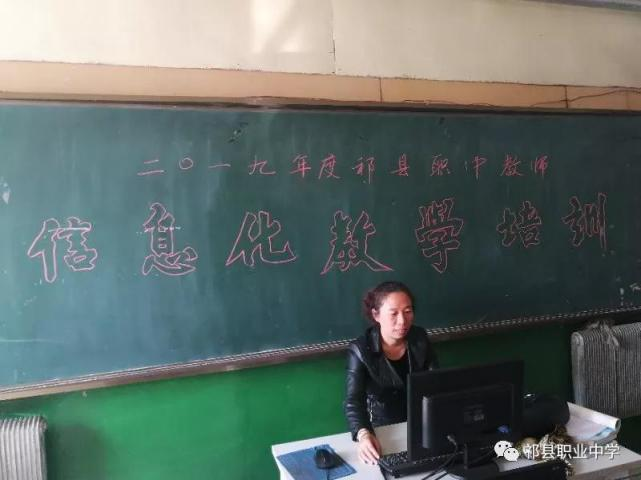 二〇一九年度祁县职中教师
信息化教学培训
祁县职业中学